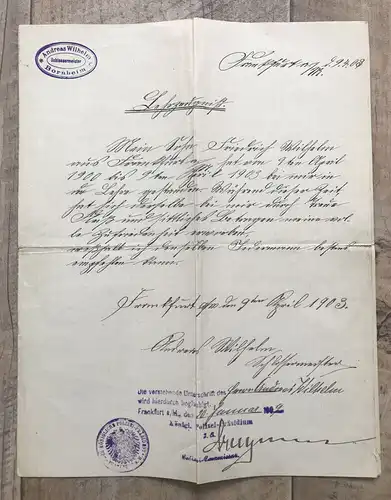 Andreas Wilhelm
Schlossermeister
Bornheim
Frankfurt a/M. d. 9.4.03
Lehrzeugniß
Mein Sohn Friedrich Wilhelm
aus Frankfurt a/ hat vom 9ten April
1900 bis 9ten April 1903 bei mir in
der Lehre gestanden. Während dieser Zeit
hat sich derselbe bei mir durch Treue
Fleiß und sittliches Betragen meine vol
le Zufriedenheit erworben.
weßhalb ich denselben Jedermann bestens
empfehlen kann.
Frankfurt a/M den 9ten April 1903.
Andreas Wilhelm
Schlossermeister
Die vorstehende Unterschrift des Herrn Andreas Wilhelm
wird hierdurch beglaubigt.
Frankfurt a/M., den Januar
Königl. Polizei-Präsidium